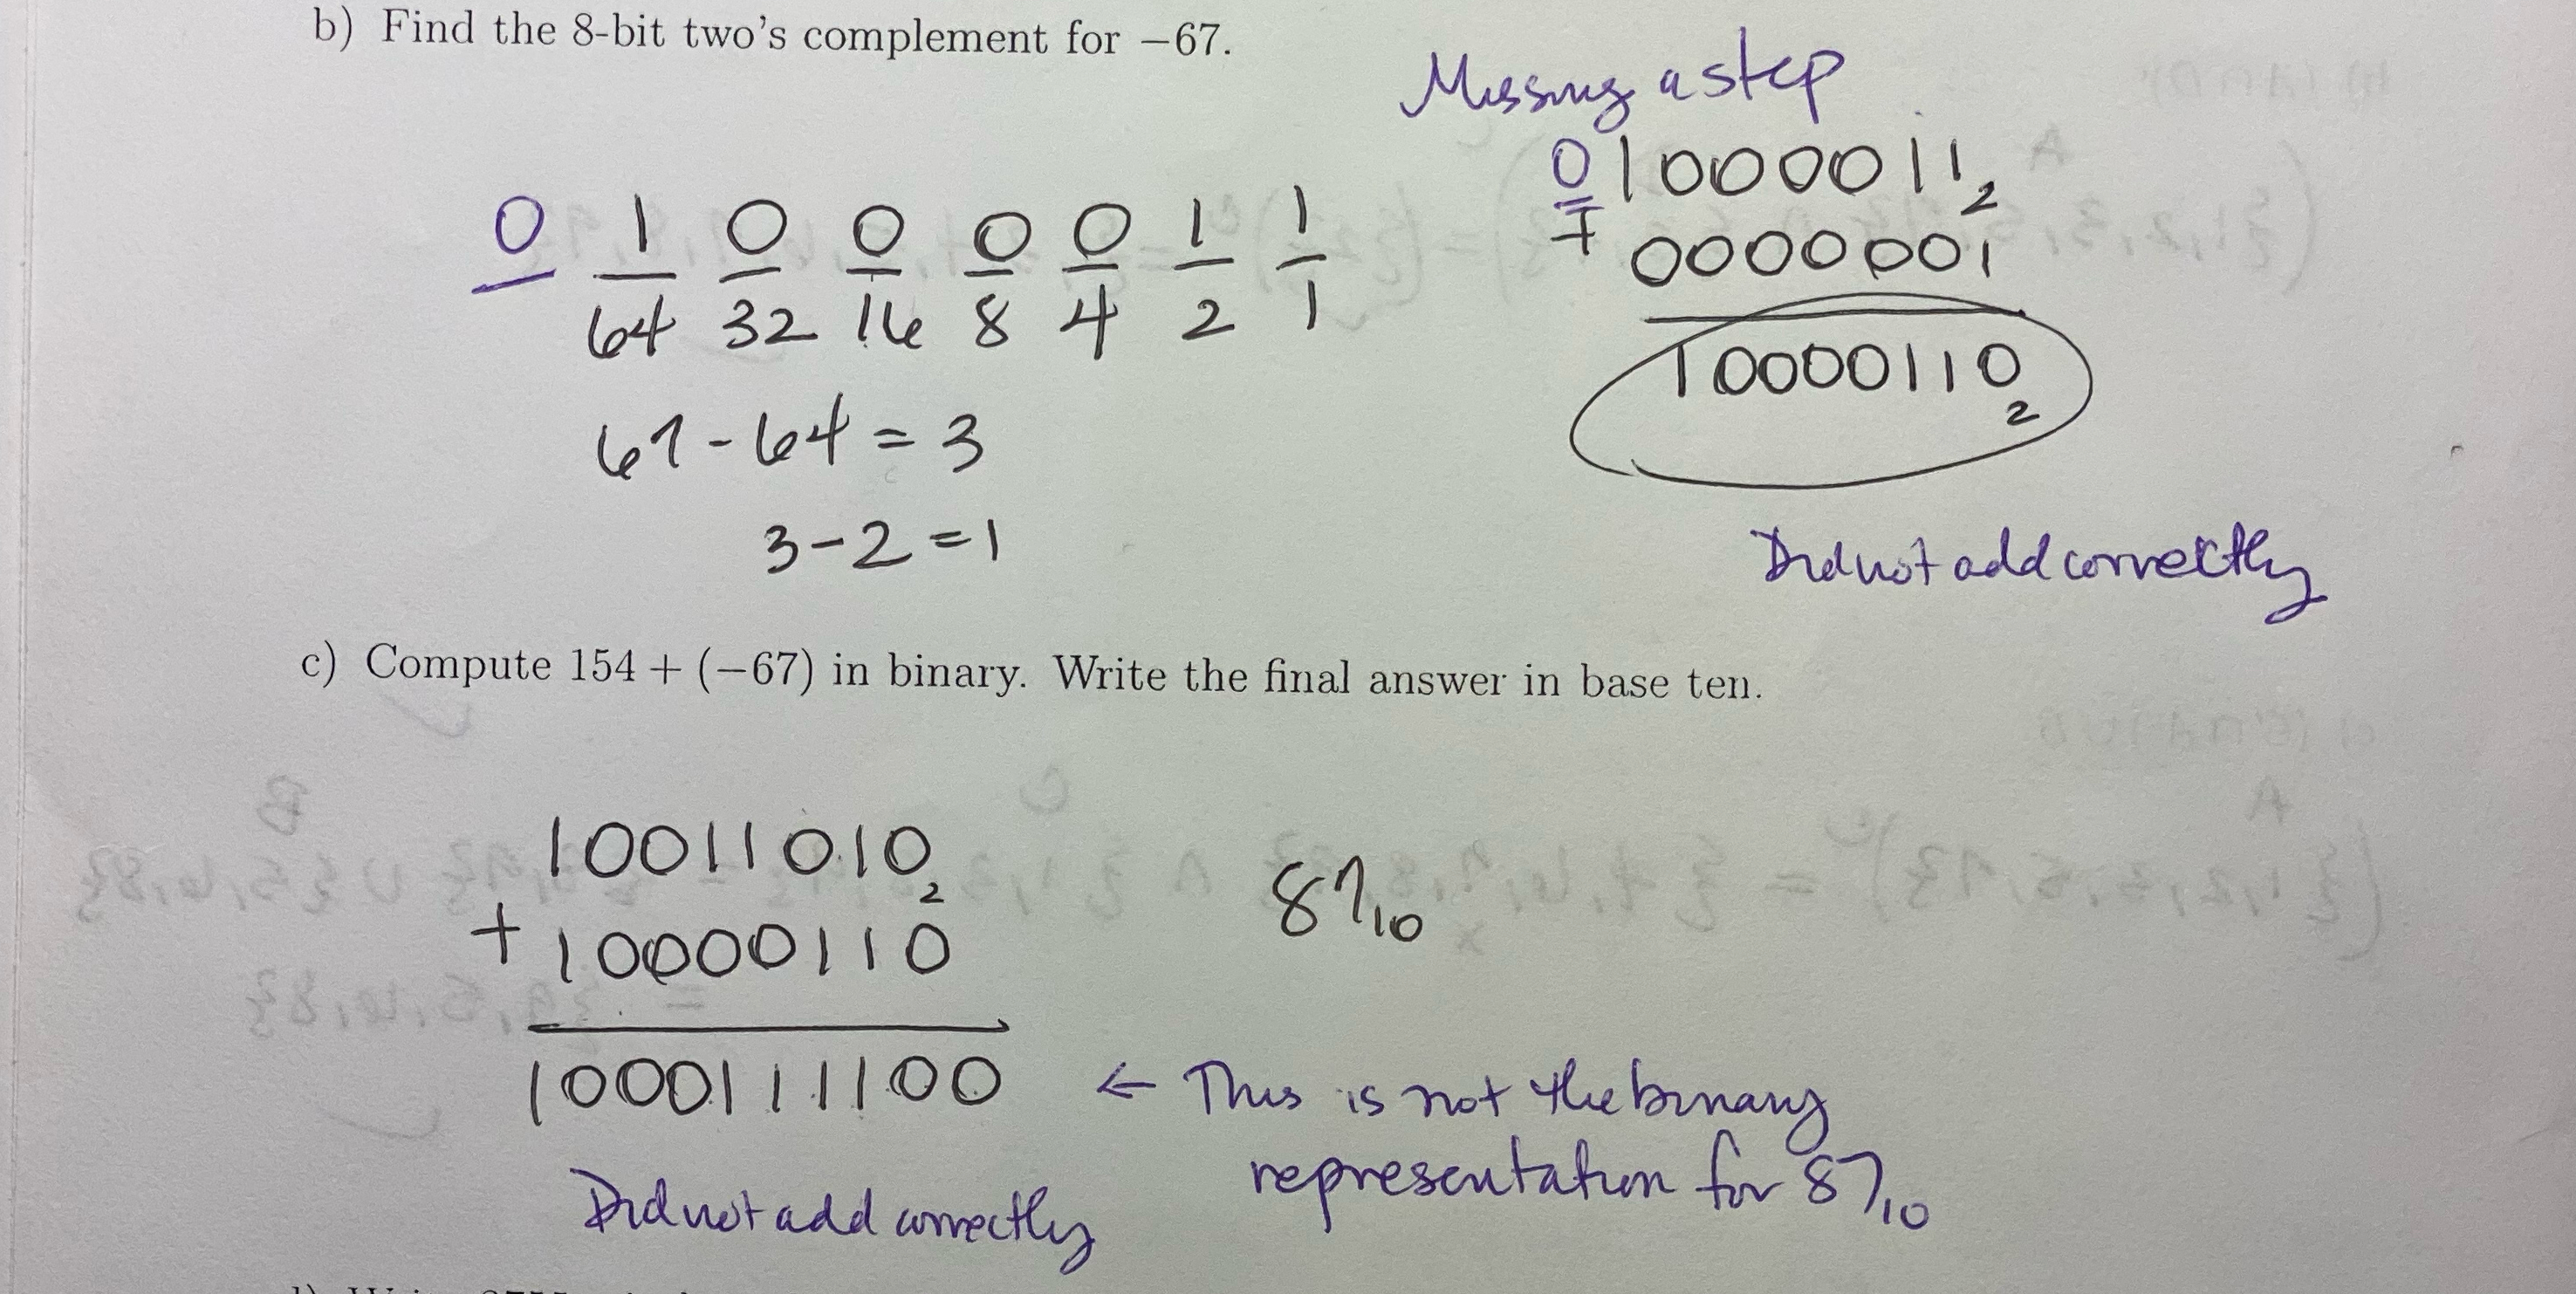 b) Find the 8-bit two's complement for −67.
Missing a step
01000011₂
+ 0000001
10000110₂
0 1 0 0 0 0 1 1
64 32 16 8 4 2 1
67 - 64 = 3
3 - 2 = 1
Did not add correctly
c) Compute 154 + (−67) in binary. Write the final answer in base ten.
10011010₂
+ 10000110
1000111100
87₁₀
← This is not the binary
representation for 87₁₀
Did not add correctly